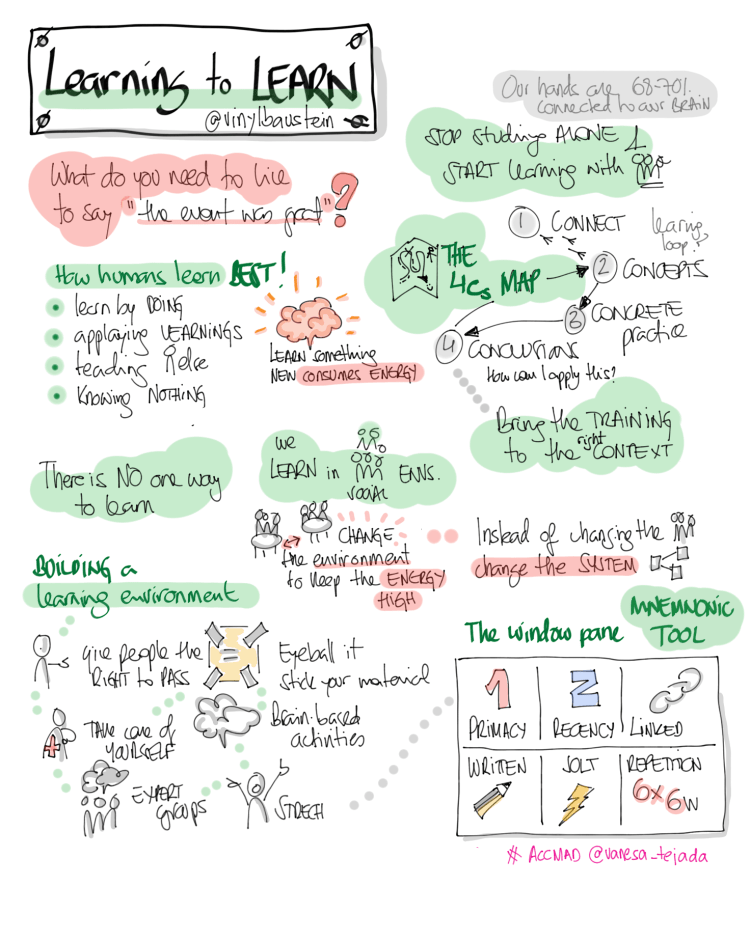 Learning to LEARN
@vinylbaustein
Our hands are 68-70%
connected to our BRAIN
STOP studing ALONE
START learning with
What do you need to live
to say "the event was great"?
1 CONNECT
learning
loop?
THE
4Cs MAP
2 CONCEPTS
3 CONCRETE
practice
4 CONCLUTIONS
How can I apply this?
How humans learn BEST!
learn by DOING
applaying LEARNINGS
teaching else
Knowing NOTHING
LEARN something
NEW CONSUMES ENERGY
Bring the TRAINING
to the right CONTEXT
There is NO one way
to learn
we
LEARN in ENVS.
social
CHANGE
the environment
to keep the ENERGY
HIGH
Instead of changing the
change the SYSTEM
BUILDING a
learning environment
give people the
RIGHT TO PASS
Eyeball it
Stick your material
TAKE care of
YOURSELF
Brain-based
activities
EXPERT
groups
STRECH
The window pane
MNEMONIC
TOOL
1
PRIMACY
2
RECENCY
LINKED
WRITTEN
JOLT
REPETITION
6x6W
# ACCMAD @vanesa_tejada